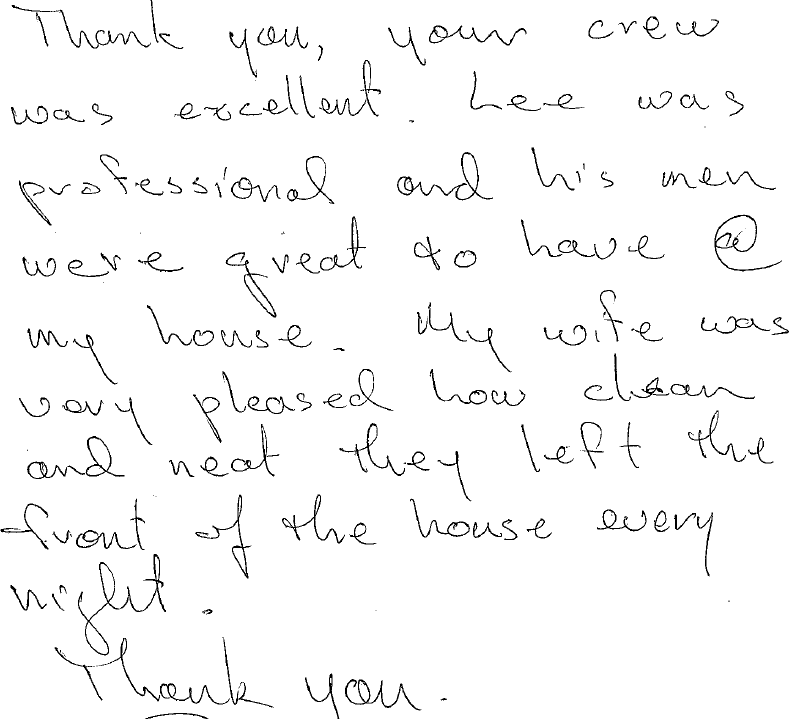 Thank you, your crew
was excellent. Lee was
professional and his men
were great to have @
my house. My wife was
very pleased how clean
and neat they left the
front of the house every
night.
Thank you.